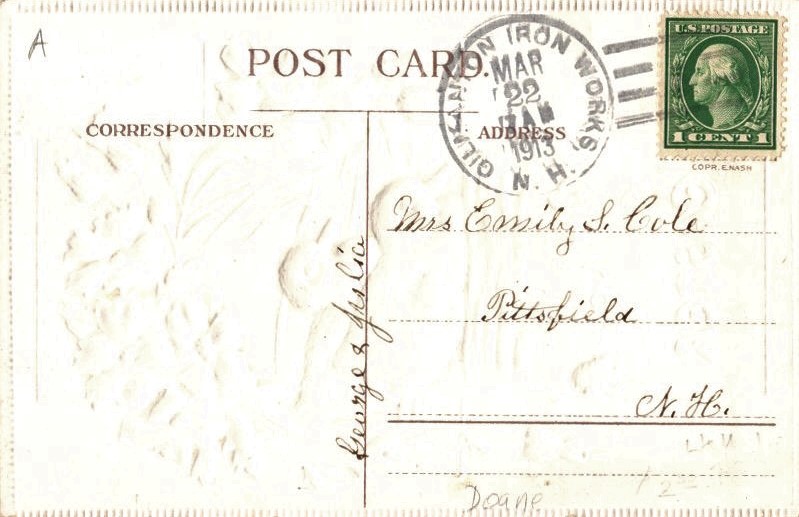 A
POST CARD.
GILMANTON IRON WORKS, N. H.
MAR
22
AM
1913
U.S. POSTAGE
1 CENT 1
COPR. E. NASH
CORRESPONDENCE
ADDRESS
Mrs Emily S. Cole
Pittsfield
N. H.
George &
Doane